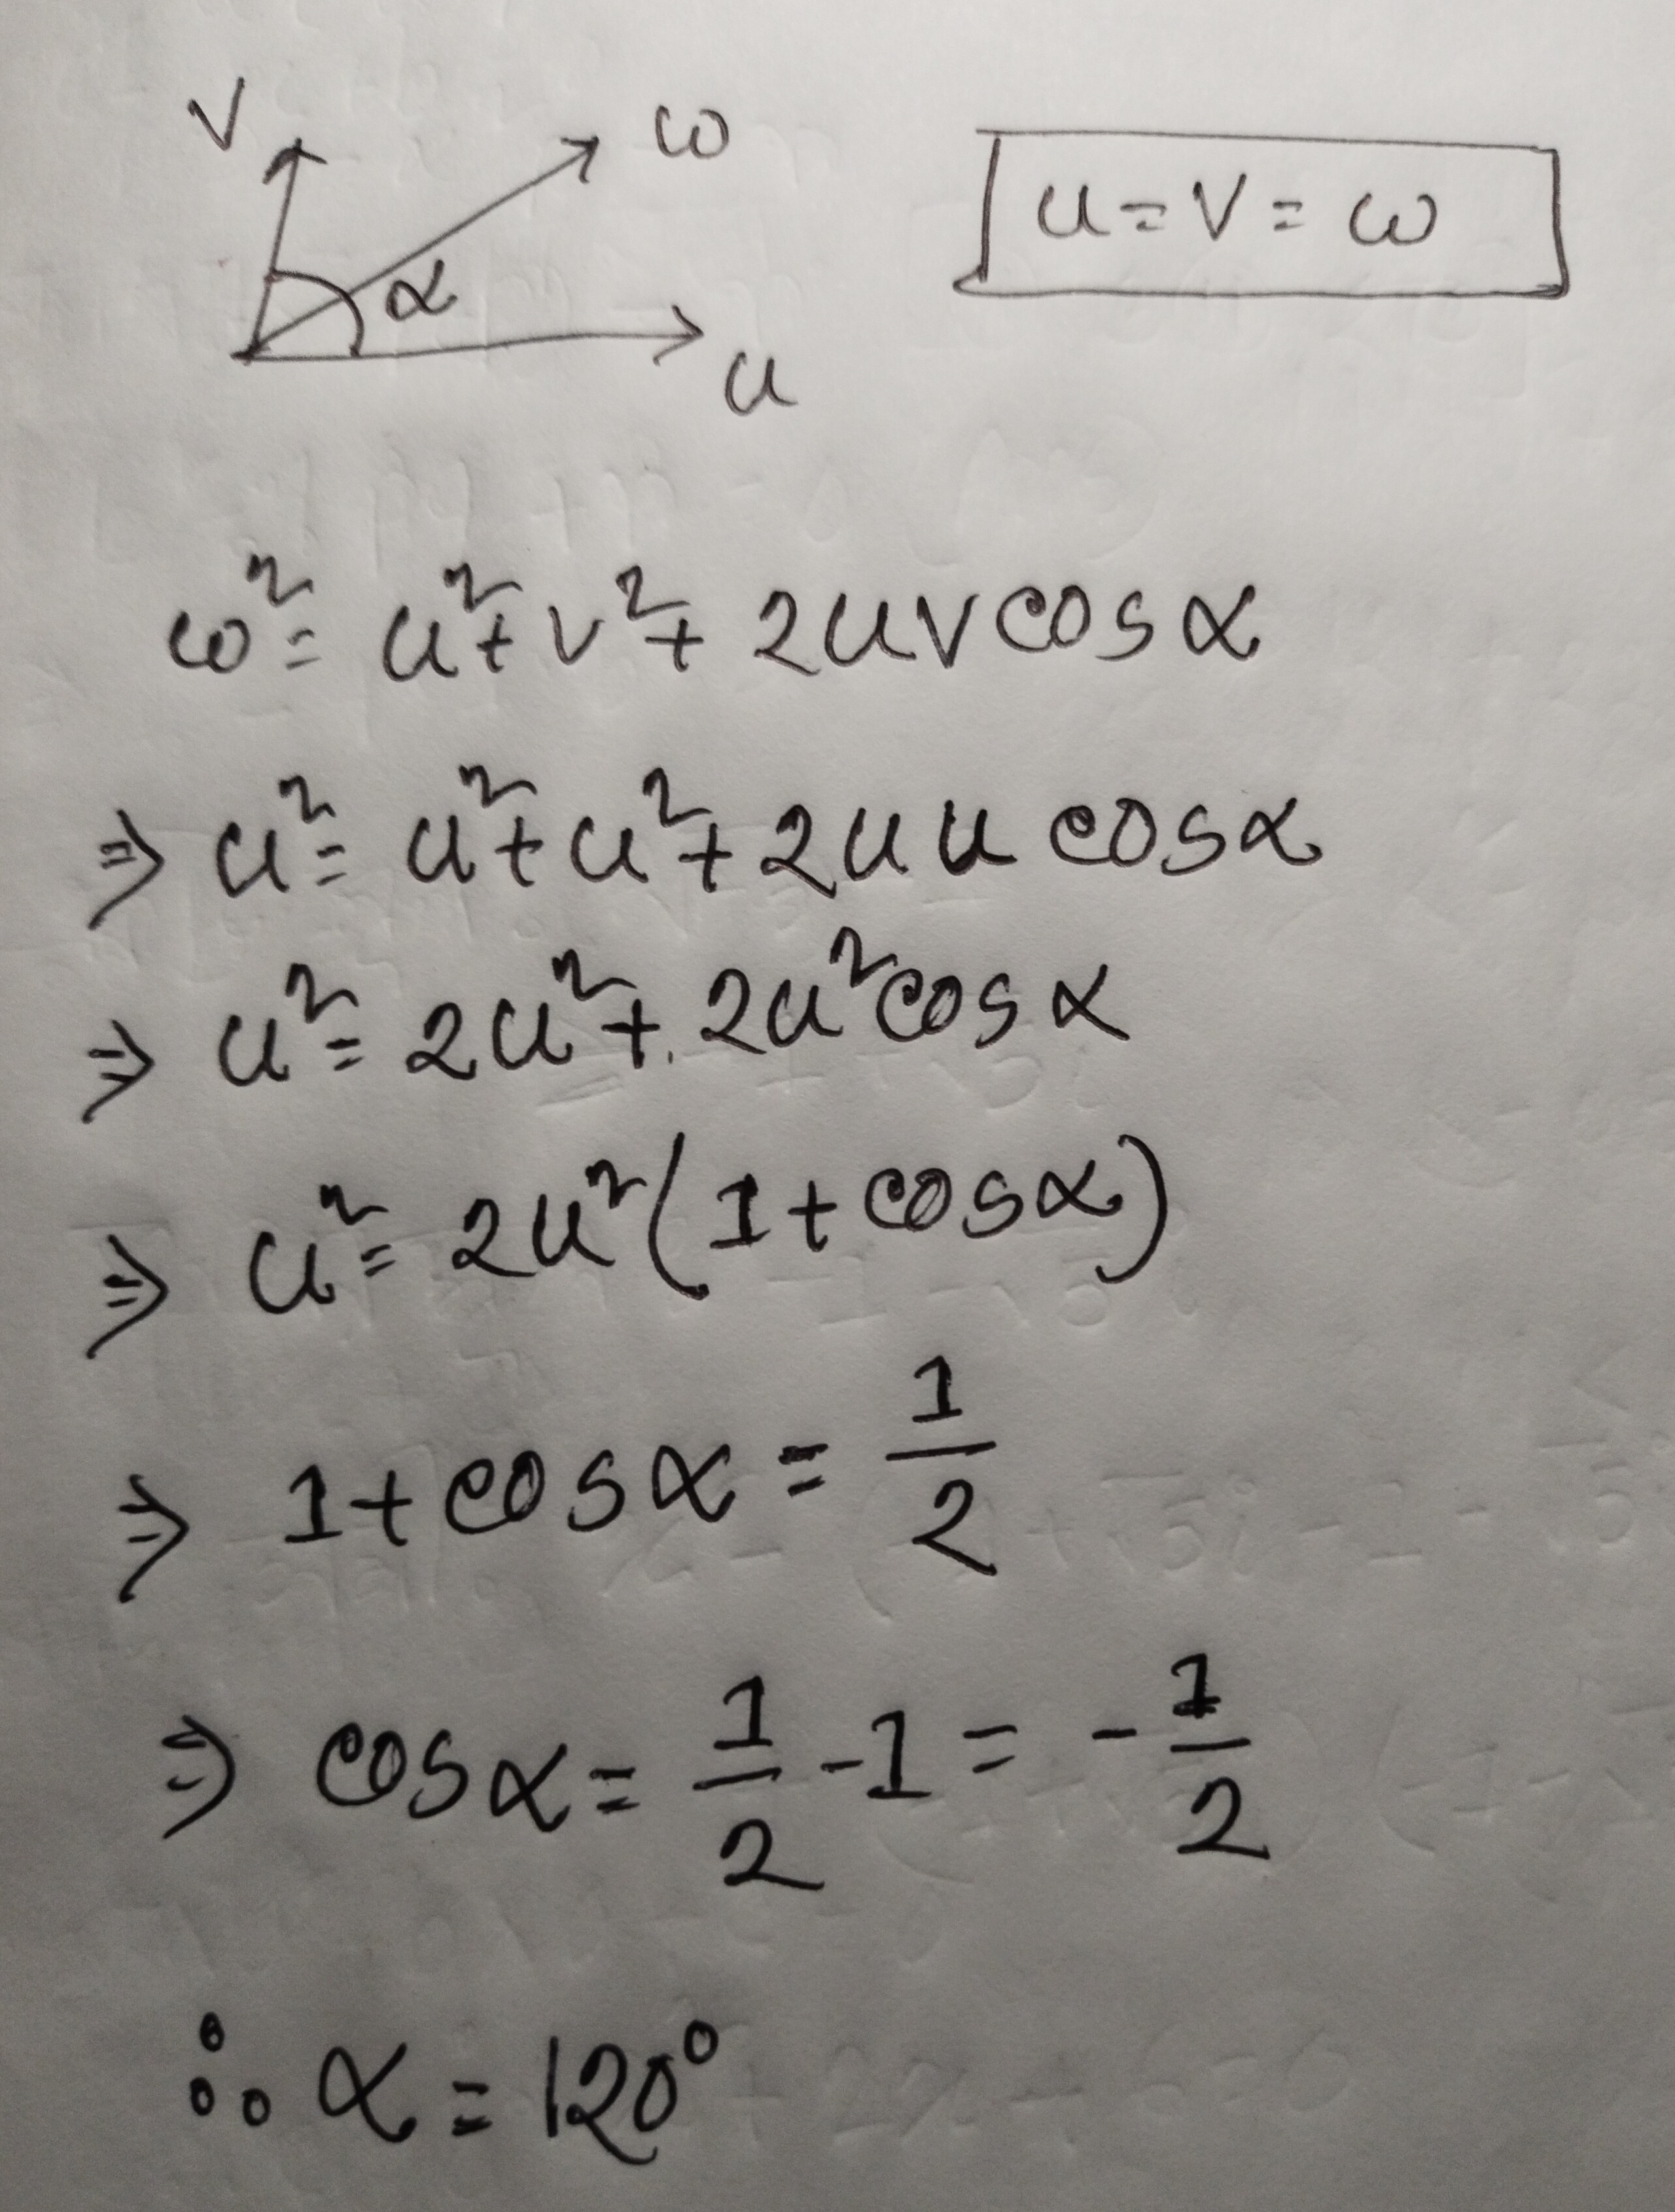 V
ω
α
u
u = v = ω
ω² = u² + v² + 2uv cos α
⇒ u² = u² + u² + 2 u u cos α
⇒ u² = 2u² + 2u² cos α
⇒ u² = 2u² (1 + cos α)
⇒ 1 + cos α = 1/2
⇒ cos α = 1/2 - 1 = - 1/2
∴ α = 120°